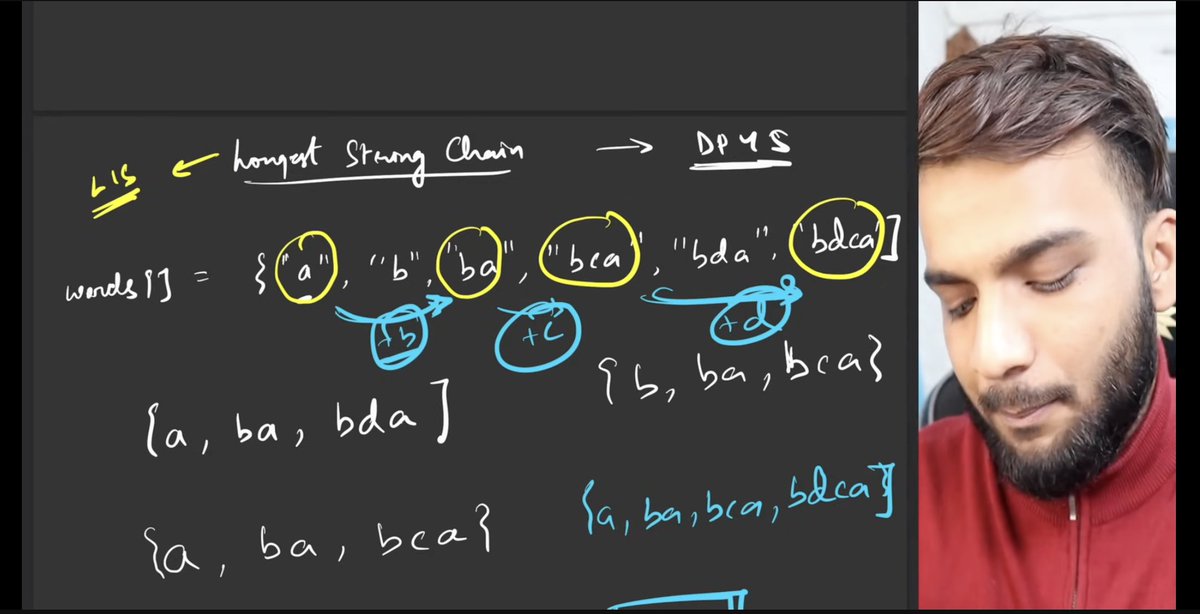 LIS ← Longest String Chain → DP 45
words[] = {"a", "b", "ba", "bca", "bda", "bdca"]
+b +c +d
{b, ba, bca}
{a, ba, bda]
{a, ba, bca, bdca]
{a, ba, bca}